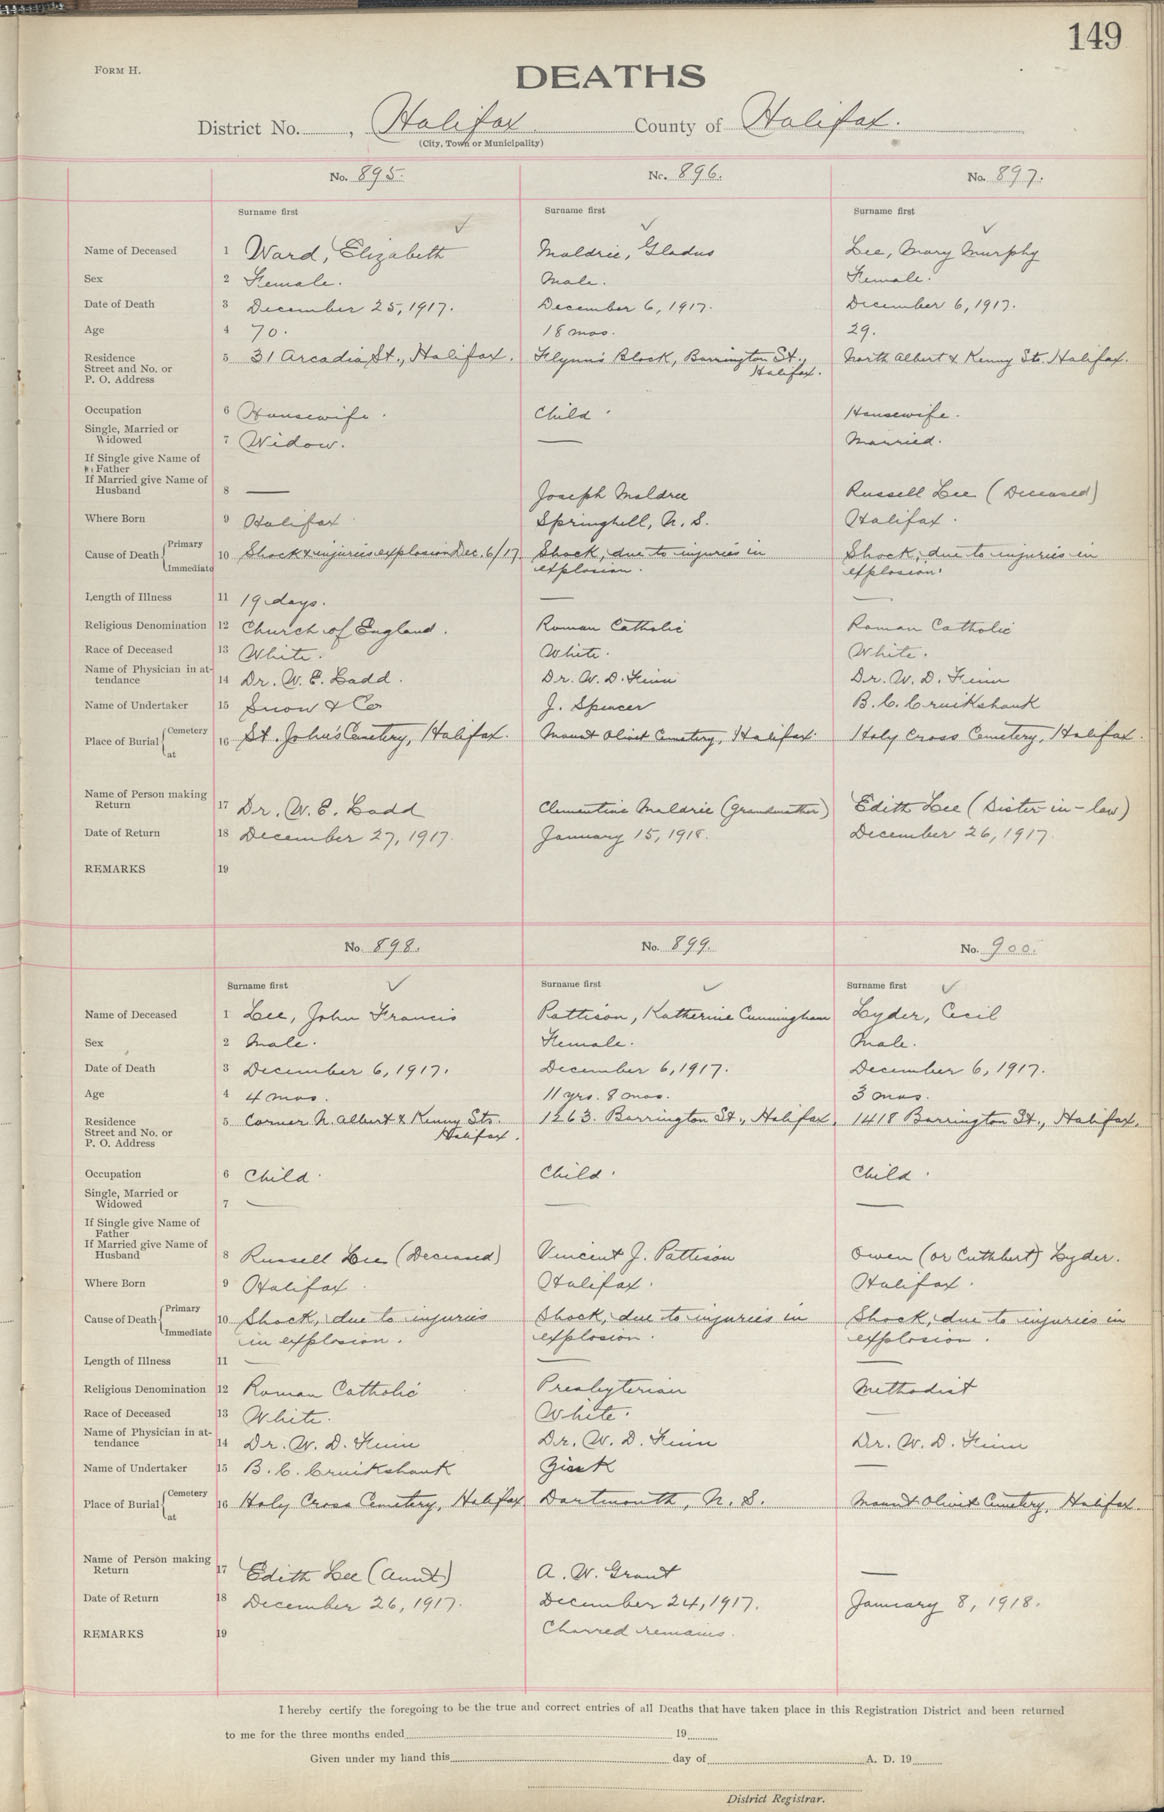 149
FORM H.
DEATHS
District No. , Halifax County of Halifax.
(City, Town or Municipality)
No. 895. No. 896. No. 897.
Surname first Surname first Surname first
Name of Deceased 1 Ward, Elizabeth Maldrie, Gladus Lee, Mary Murphy
Sex 2 Female. Male. Female.
Date of Death 3 December 25, 1917. December 6, 1917. December 6, 1917.
Age 4 70. 18 mos. 29.
Residence Street and No. or P. O. Address 5 31 Arcadia St., Halifax. Flynn's Block, Barrington St., Halifax. North Albert & Kenny Sts. Halifax.
Occupation 6 Housewife. Child. Housewife.
Single, Married or Widowed 7 Widow. — Married.
If Single give Name of Father
If Married give Name of Husband 8 — Joseph Maldree Russell Lee (Deceased)
Where Born 9 Halifax Springhill, N. S. Halifax.
Cause of Death Primary Immediate 10 Shock & injuries explosion Dec. 6/17. Shock, due to injuries in explosion. Shock, due to injuries in explosion.
Length of Illness 11 19 days. — —
Religious Denomination 12 Church of England. Roman Catholic Roman Catholic
Race of Deceased 13 White. White. White.
Name of Physician in attendance 14 Dr. W. E. Ladd. Dr. W. D. Finn Dr. W. D. Finn
Name of Undertaker 15 Snow & Co J. Spencer B. C. Cruikshank
Place of Burial Cemetery at 16 St. John's Cemetery, Halifax. Mount Olivet Cemetery, Halifax. Holy Cross Cemetery, Halifax.
Name of Person making Return 17 Dr. W. E. Ladd Clementine Maldrie (Grandmother) Edith Lee (Sister-in-law)
Date of Return 18 December 27, 1917. January 15, 1918. December 26, 1917.
REMARKS 19
No. 898. No. 899. No. 900.
Surname first Surname first Surname first
Name of Deceased 1 Lee, John Francis Pattison, Katherine Cunningham Lyder, Cecil
Sex 2 Male. Female. Male.
Date of Death 3 December 6, 1917. December 6, 1917. December 6, 1917.
Age 4 4 mos. 11 yrs. 8 mos. 3 mos.
Residence Street and No. or P. O. Address 5 Corner N. Albert & Kenny Sts. Halifax. 1263 Barrington St., Halifax. 1418 Barrington St., Halifax.
Occupation 6 Child. Child. Child.
Single, Married or Widowed 7 — — —
If Single give Name of Father
If Married give Name of Husband 8 Russell Lee (Deceased) Vincent J. Pattison Owen (or Cuthbert) Lyder.
Where Born 9 Halifax. Halifax. Halifax.
Cause of Death Primary Immediate 10 Shock, due to injuries in explosion. Shock, due to injuries in explosion. Shock, due to injuries in explosion.
Length of Illness 11 — — —
Religious Denomination 12 Roman Catholic Presbyterian Methodist
Race of Deceased 13 White. White. —
Name of Physician in attendance 14 Dr. W. D. Finn Dr. W. D. Finn Dr. W. D. Finn
Name of Undertaker 15 B. C. Cruikshank Zink —
Place of Burial Cemetery at 16 Holy Cross Cemetery, Halifax Dartmouth, N. S. Mount Olivet Cemetery, Halifax.
Name of Person making Return 17 Edith Lee (Aunt) A. W. Grant —
Date of Return 18 December 26, 1917. December 24, 1917. January 8, 1918.
REMARKS 19 Charred remains.
I hereby certify the foregoing to be the true and correct entries of all Deaths that have taken place in this Registration District and been returned
to me for the three months ended 19
Given under my hand this day of A. D. 19
District Registrar.